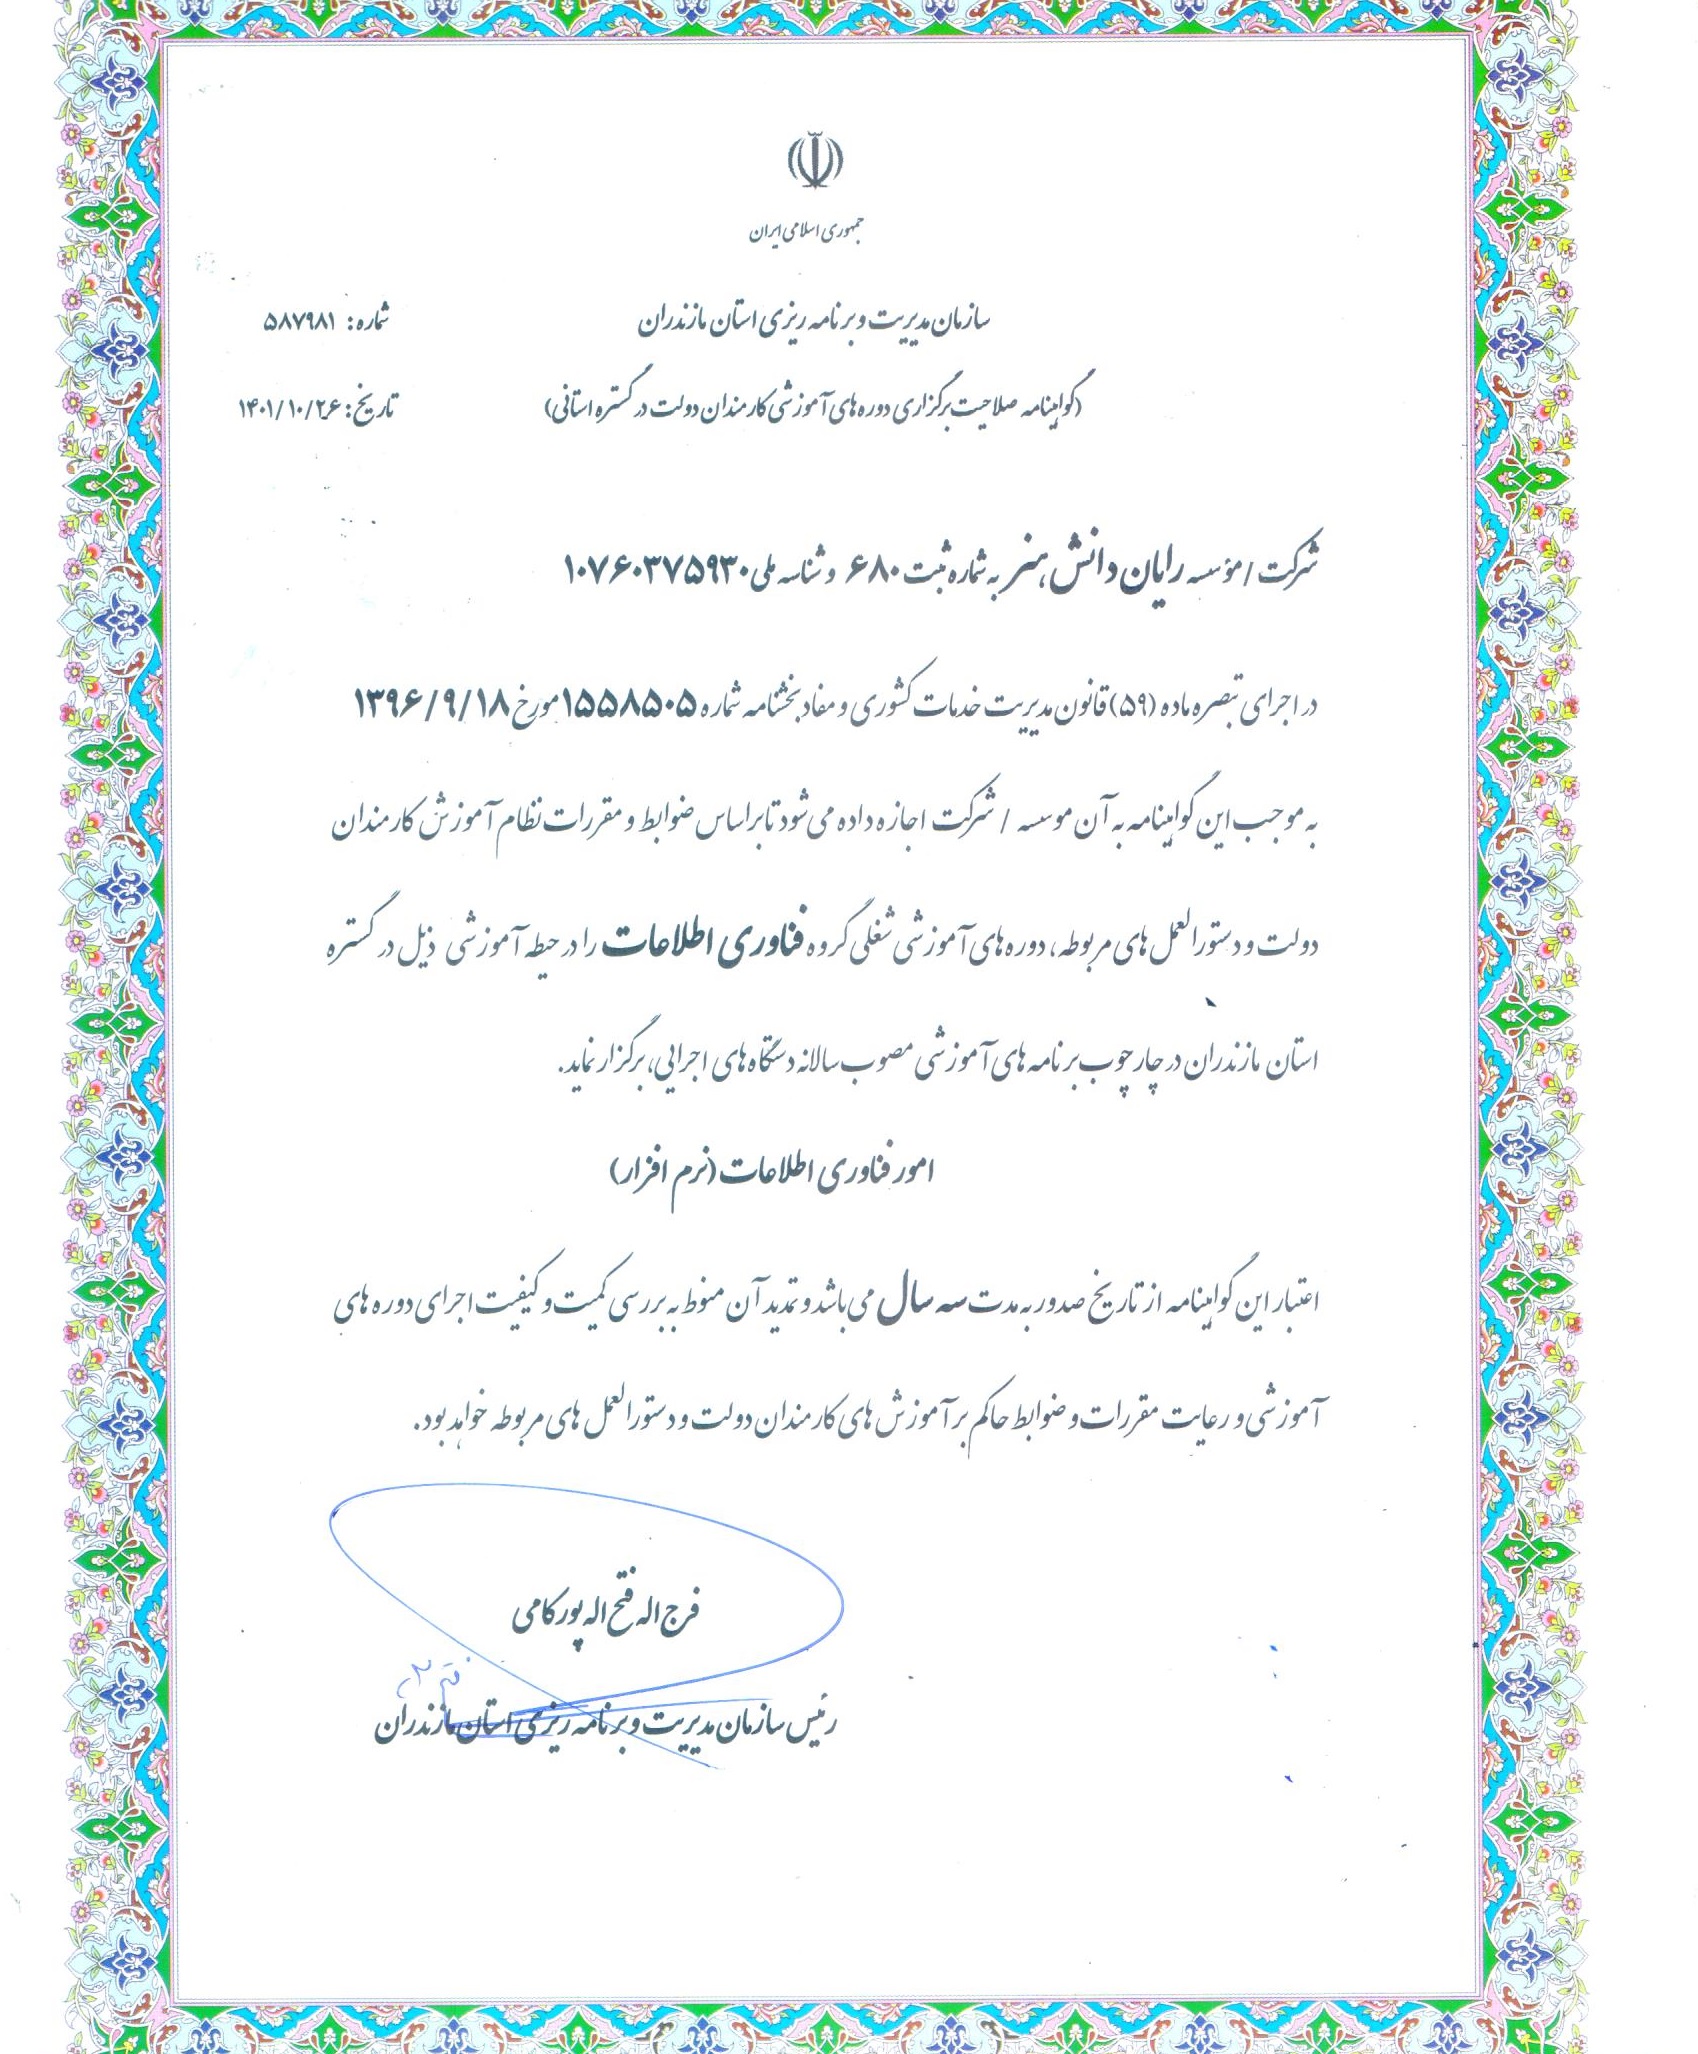 جمهوری اسلامی ایران
سازمان مدیریت و برنامه ریزی استان مازندران
شماره: ۵۸۷۹۸۱
(گواهینامه صلاحیت برگزاری دوره های آموزشی کارمندان دولت در گستره استانی)
تاریخ: ۱۴۰۱/۱۰/۲۶
شرکت / مؤسسه رایان دانش هنر به شماره ثبت ۶۸۰ و شناسه ملی ۱۰۷۶۰۳۷۵۹۳۰
در اجرای تبصره ماده (۵۹) قانون مدیریت خدمات کشوری و مفاد بخشنامه شماره ۱۵۵۸۵۰۵ مورخ ۱۳۹۶/۹/۱۸
به موجب این گواهینامه به آن موسسه / شرکت اجازه داده می شود تا براساس ضوابط و مقررات نظام آموزش کارمندان
دولت و دستورالعمل های مربوطه، دوره های آموزشی شغلی گروه فناوری اطلاعات را در حیطه آموزشی ذیل در گستره
استان مازندران در چارچوب برنامه های آموزشی مصوب سالانه دستگاه های اجرایی، برگزار نماید.
امور فناوری اطلاعات (نرم افزار)
اعتبار این گواهینامه از تاریخ صدور به مدت سه سال می باشد و تمدید آن منوط به بررسی کمیت و کیفیت اجرای دوره های
آموزشی و رعایت مقررات و ضوابط حاکم بر آموزش های کارمندان دولت و دستورالعمل های مربوطه خواهد بود.
فرج اله فتح اله پور کامی
رئیس سازمان مدیریت و برنامه ریزی استان مازندران